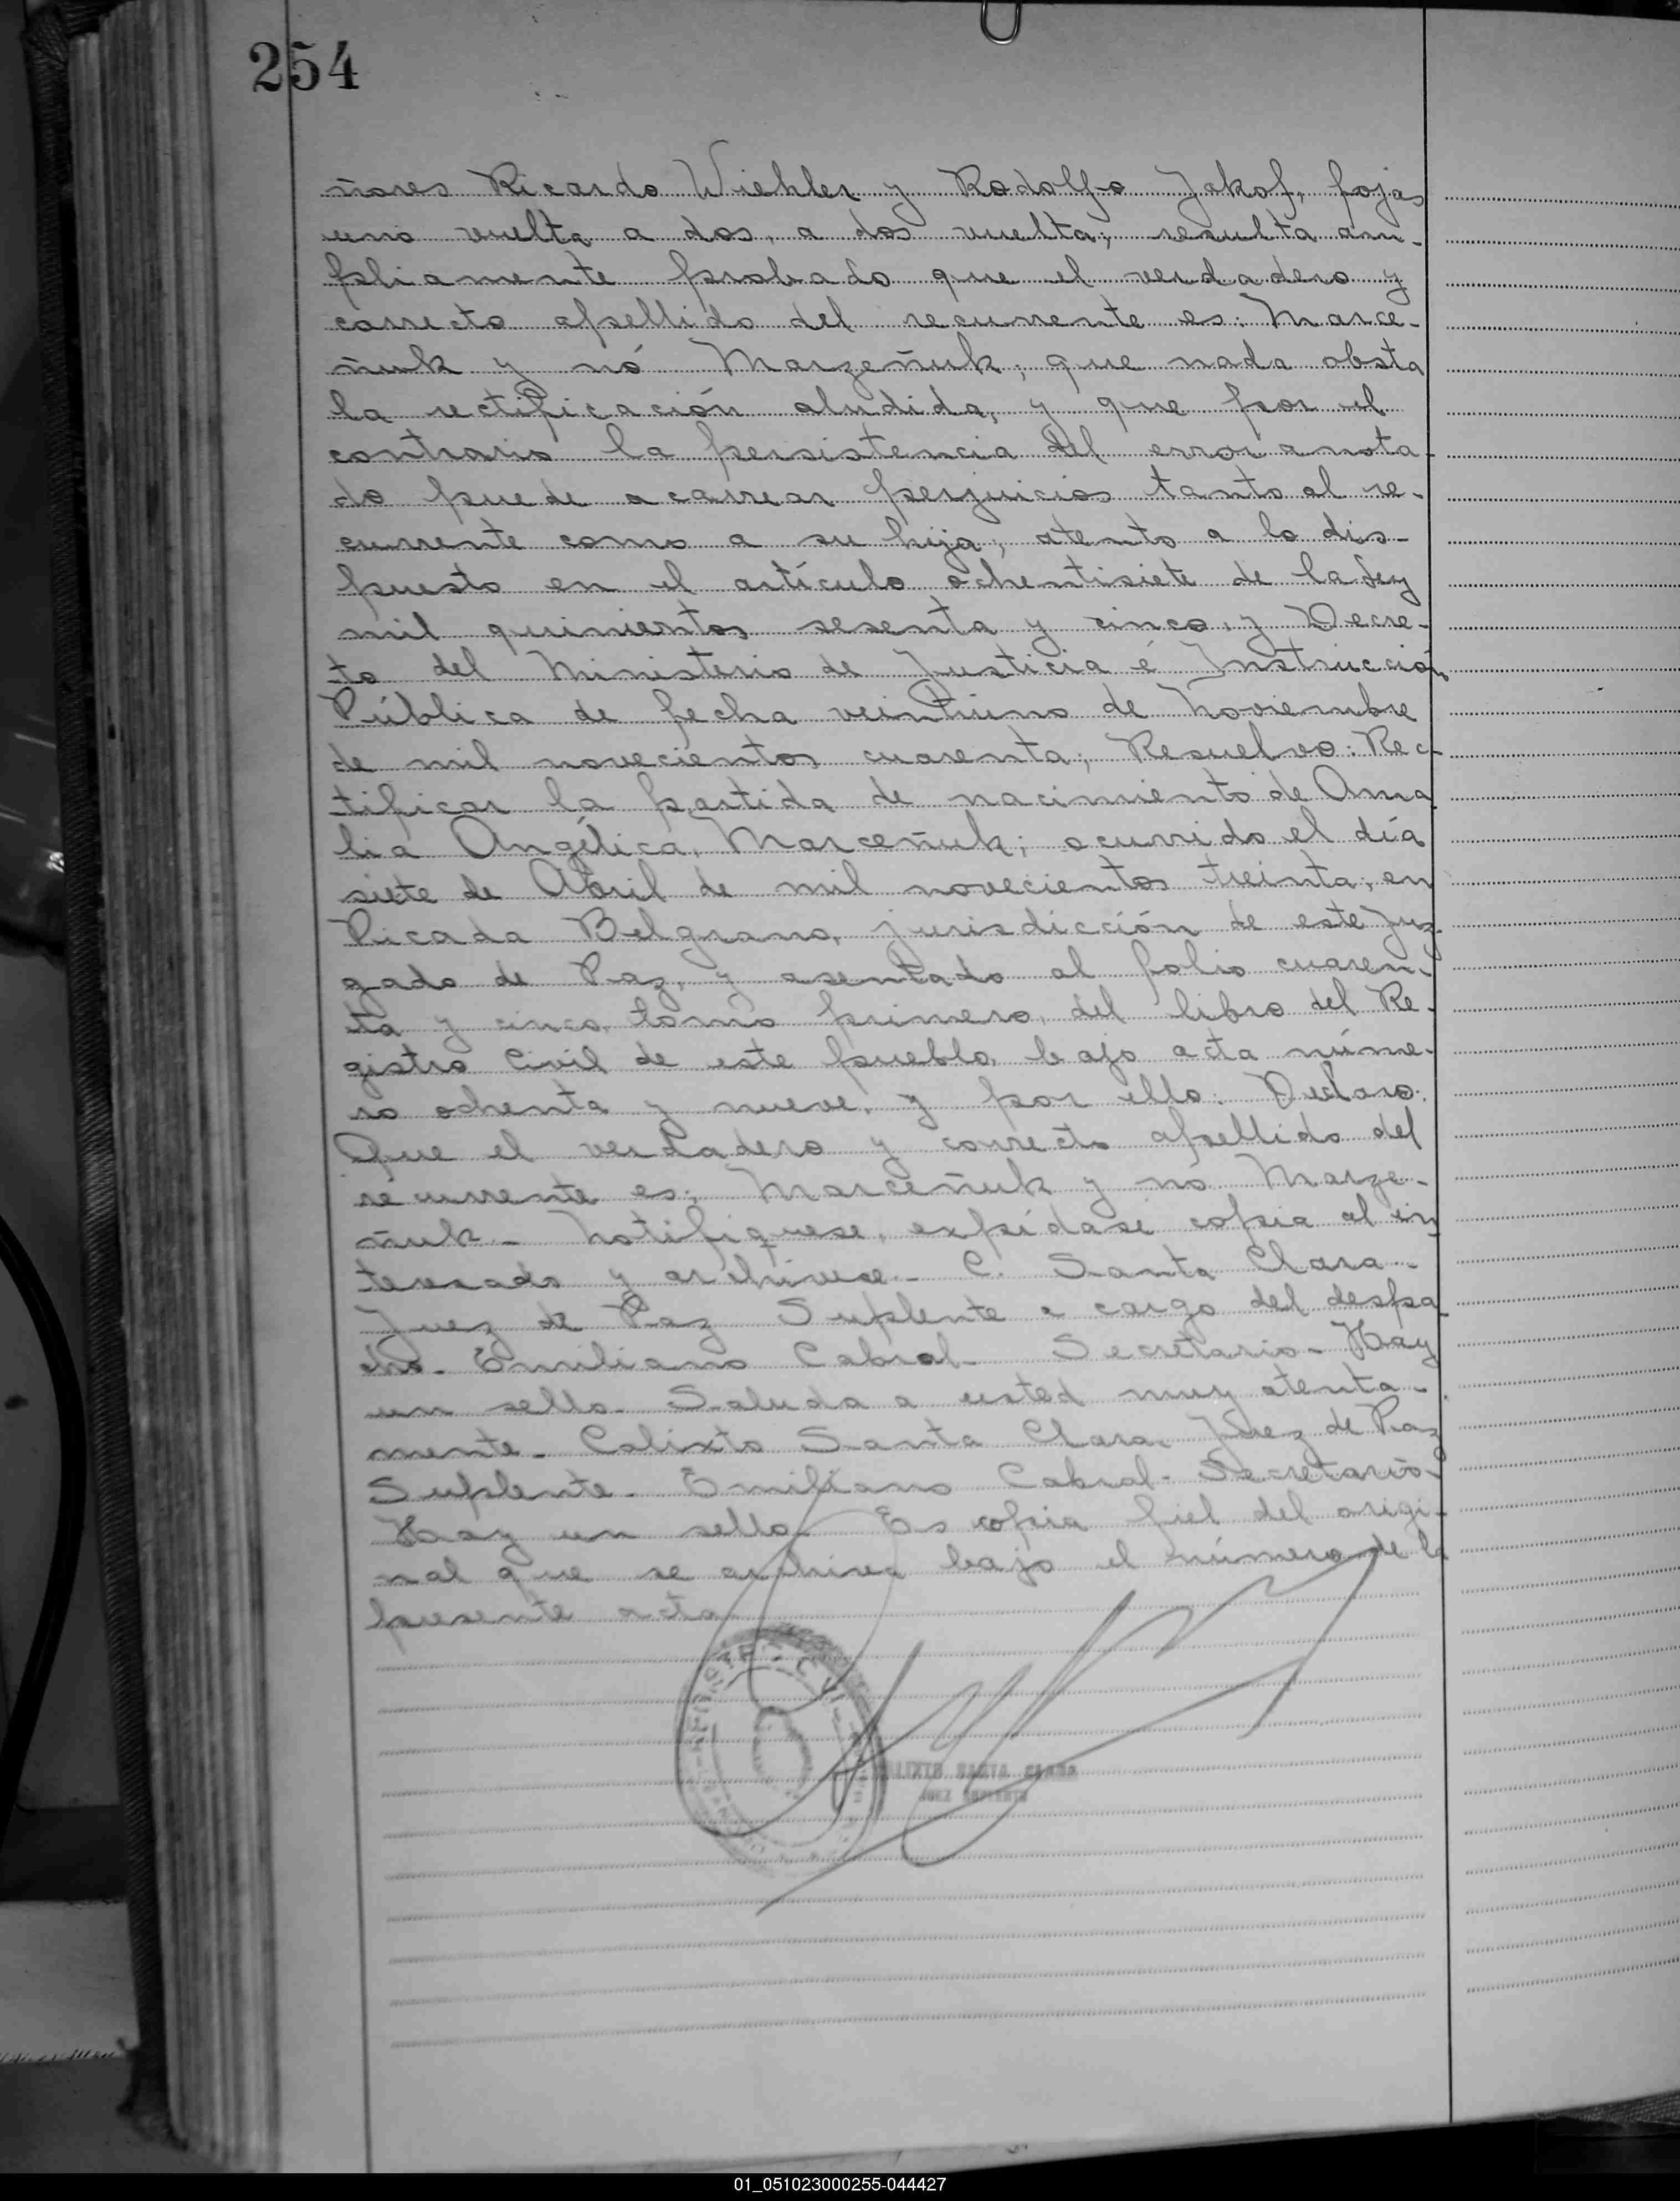 254
ñores Ricardo Wiehler y Rodolfo Jakof, fojas
uno vuelta a dos, a dos vuelta; resulta am-
pliamente probado que el verdadero y
correcto apellido del recurrente es: Marce-
ñuk y nó Marzeñuk; que nada obsta
la rectificación aludida, y que por el
contrario la persistencia del error anota-
do puede acarrear perjuicios tanto al re-
currente como a su hija; atento a lo dis-
puesto en el artículo ochentisiete de la Ley
mil quinientos sesenta y cinco, y Decre-
to del Ministerio de Justicia é Instrucción
Pública de fecha veintiuno de Noviembre
de mil novecientos cuarenta; Resuelvo: Rec-
tificar la partida de nacimiento de Ama
lia Angélica, Marceñuk; ocurrido el día
siete de Abril de mil novecientos treinta, en
Picada Belgrano, jurisdicción de este Juz-
gado de Paz, y asentado al folio cuaren-
ta y cinco, tomo primero, del libro del Re-
gistro Civil de este pueblo, bajo acta núme-
ro ochenta y nueve, y por ello: Declaro:
Que el verdadero y correcto apellido del
recurrente es: Marceñuk y nó Marze-
ñuk.- Notifiquese, expídase copia al in
teresado y archivese.- C. Santa Clara.-
Juez de Paz Suplente a cargo del despa
cho.- Emiliano Cabral- Secretario- Hay
un sello- Saluda a usted muy atenta-
mente.- Calixto Santa Clara. Juez de Paz
Suplente.- Emiliano Cabral- Secretario-
Hay un sello- Es copia fiel del origi-
nal que se archiva bajo el número de la
presente acta
CALIXTO SANTA CLARA
JUEZ SUPLENTE
01_051023000255-044427